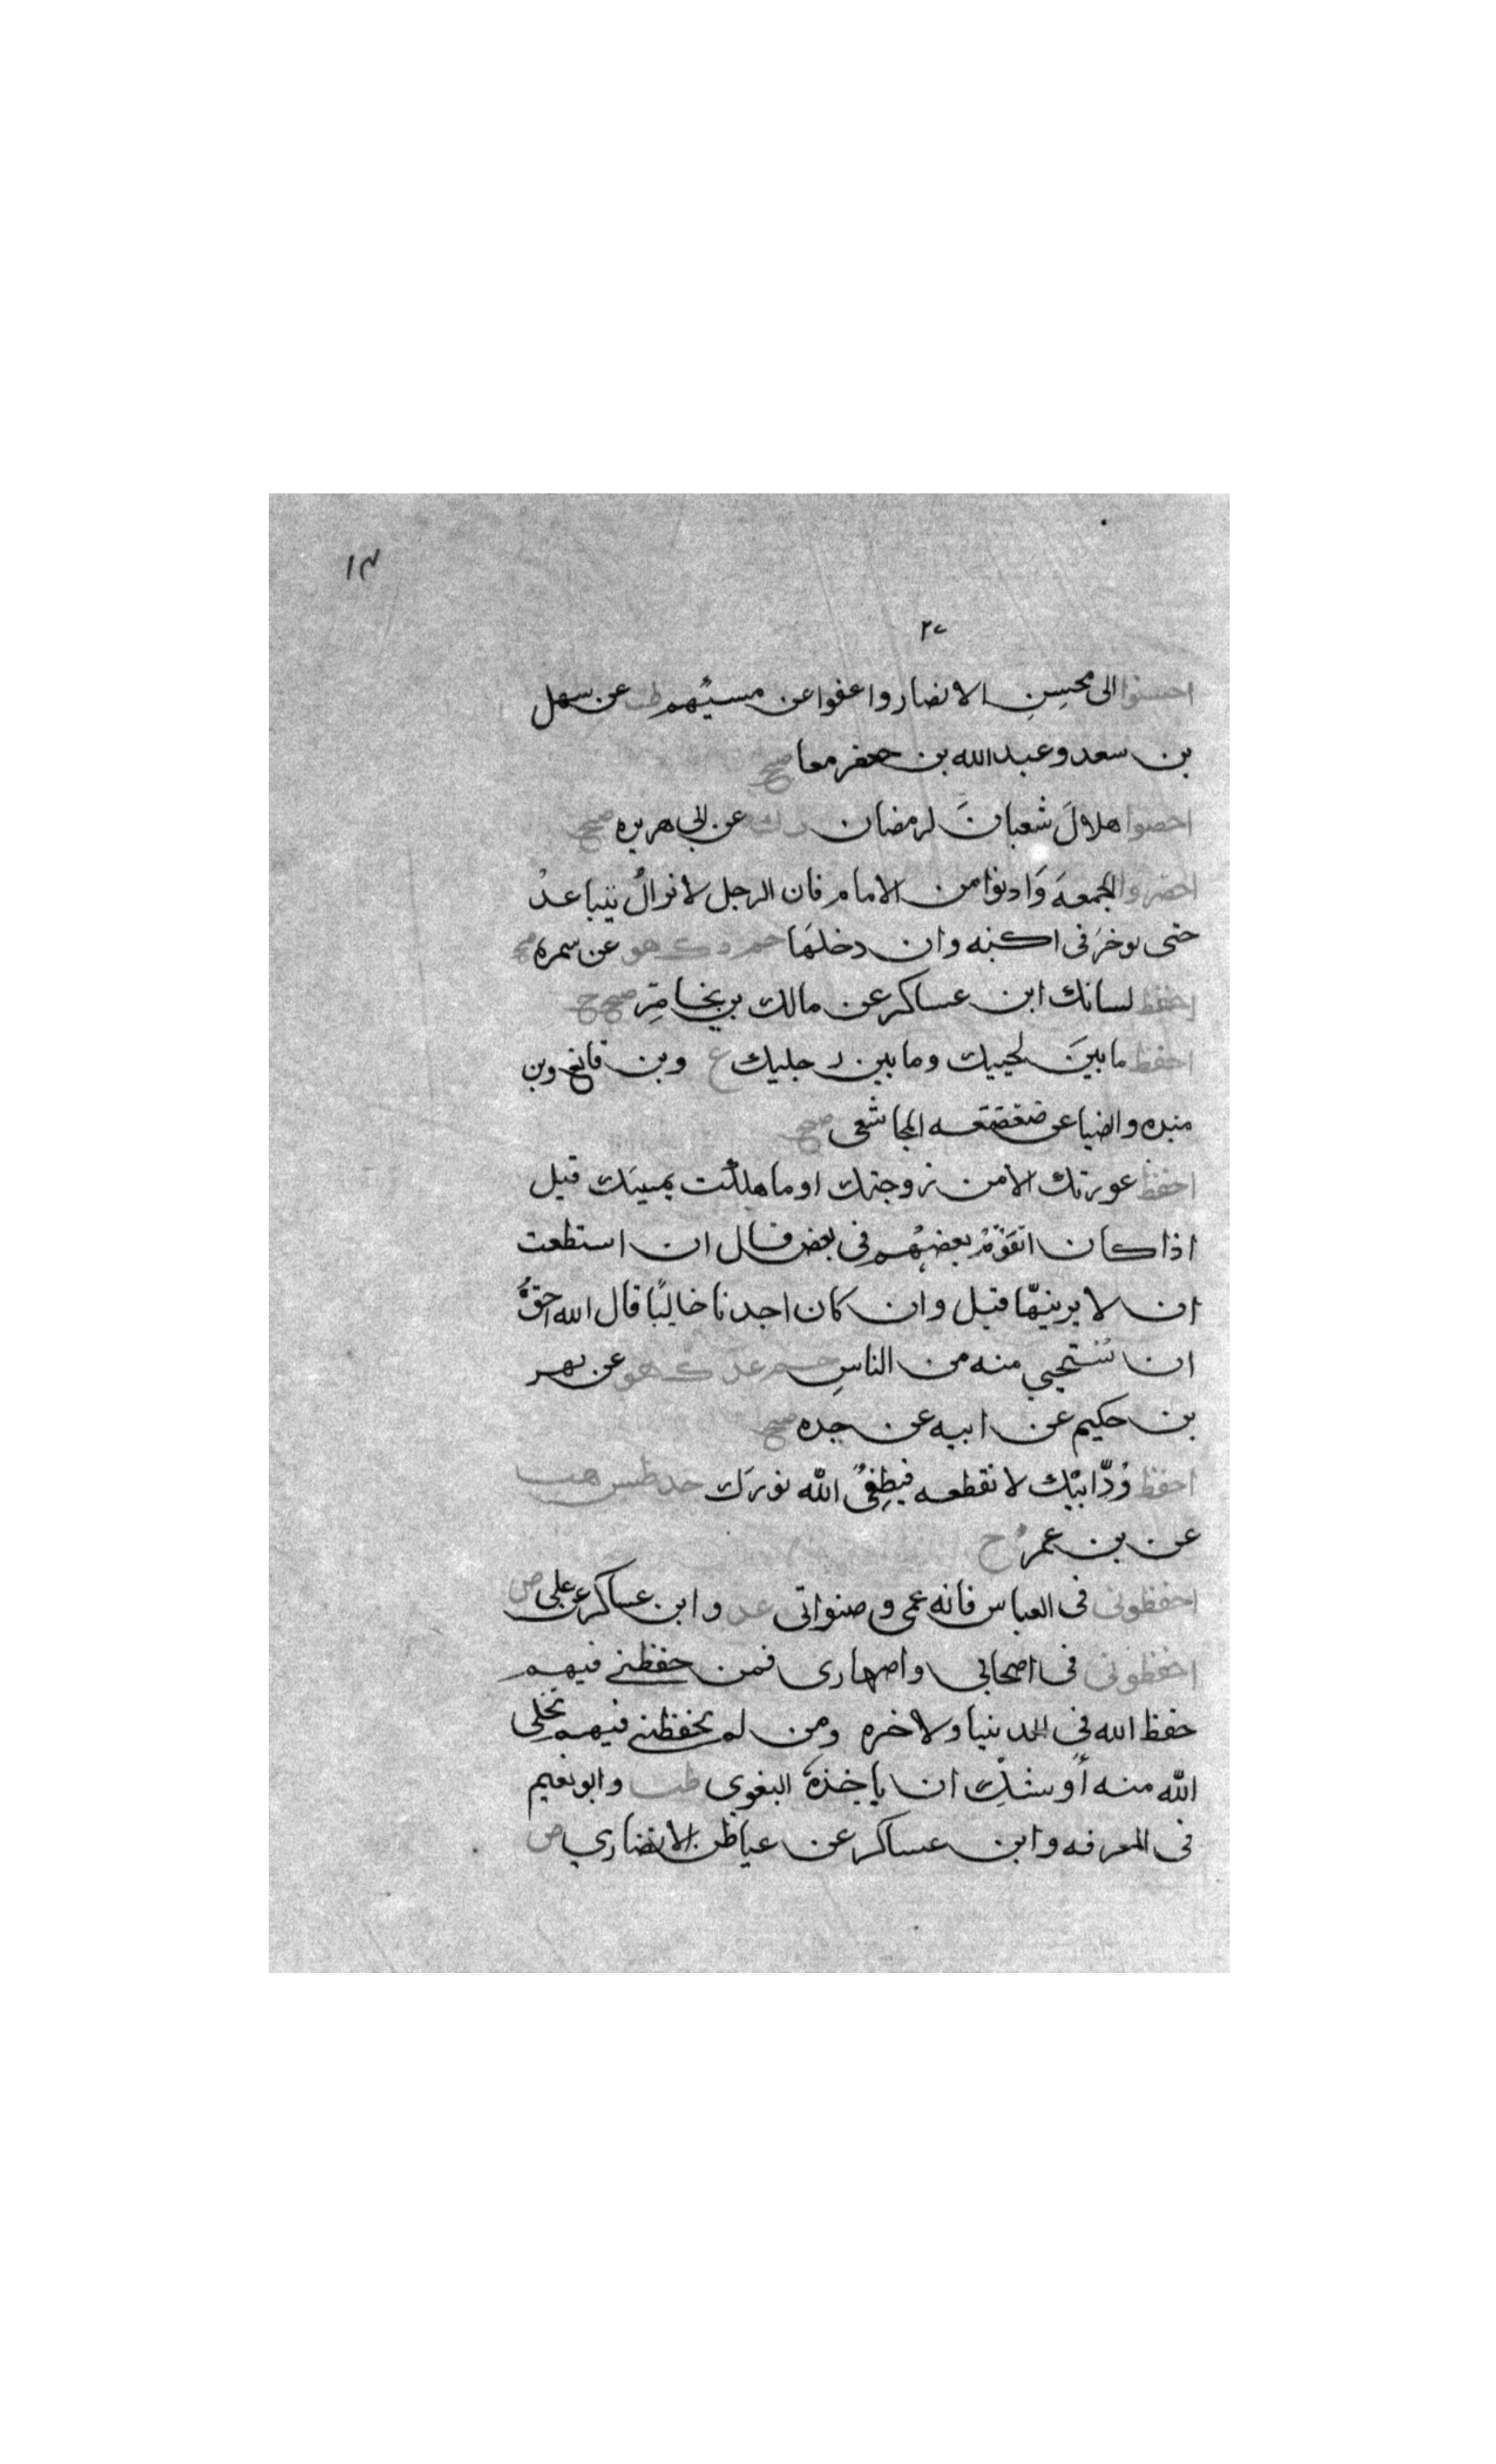 ١٣
٢٠
احسنوا الى محسِنِ الانصار واعفوا عن مسيئهم طب عن سهل
بن سعد وعبدالله بن جعفر معا صح
احصوا هلالَ شعبانَ لرمضان ت ك عن ابي هريره صح
احضروا الجمعهَ وَادنوا من الامام فان الرجل لا نوالُ يتباعدْ
حتى يوخرَ فى اكبنه وان دخلهَا حم د ك هق عن سمره صح
احفظ لسانك ابن عساكر عن مالك بن يخامِر صح ح
احفظ ما بينَ لحييك وما بين رجليك ع وبن قانع وبن
منده والضيا عن المجاشعى صح
احفظ عورتك الا من زوجتك او ما ملكت يمينك قيل
اذا كان القَوْمُ بعضهُم فى بعض قال ان استطعت
ان لا يرينهّا قيل وان كان احدنا خاليًا قال الله احقُّ
ان تستحيي منه من الناسِ حم عد ك هق عن بهر
بن حكيم عن ابيه عن جده صح
احفظ وُدَّ ابيْك لا تقطعه فيطفئُ الله نورَك خد طس هب
عن بن عمر ح
احفظونى فى العباس فانه عمى وصنو ابى عد وابن عساكر عن على ض
احفظونى فى اصحابي واصهارى فمن حفظنى فيهم
حفظ الله فى الدنيا ولاخره ومن لم يحفظنى فيهم تخلى
الله منه أوشك ان ياخذهَ البغوى طب وابو نعيم
فى المعرفه وابن عساكر عن عياض الانصاري ض